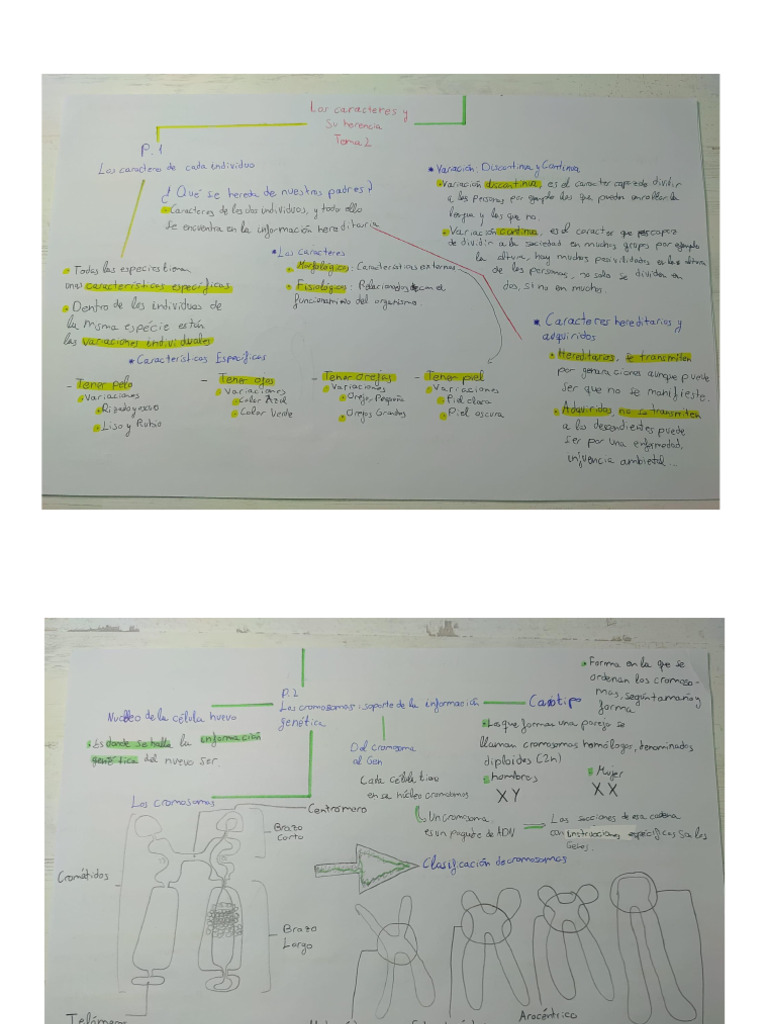 Los caracteres y
Su herencia
Tema 2
P.1
Los caracteres de cada individuo
¿Qué se hereda de nuestros padres?
Caracteres de los dos individuos, y todo ello
se encuentra en la información hereditaria
• Todas las especies tienen
unas características específicas
• Dentro de los individuos de
la misma especie están
las variaciones individuales
• Los caracteres
• Morfológicos: Características externas
• Fisiológicos: Relacionados con el
funcionamiento del organismo.
• Características Específicas
- Tener pelo
Variaciones
Rizado y oscuro
Liso y Rubio
- Tener ojos
Variaciones
Color Azul
Color Verde
- Tener orejas
Variaciones
Oreja Pequeña
Orejas Grandes
- Tener piel
Variaciones
Piel clara
Piel oscura
• Variación: Discontinua y Continua
• Variación discontinua, es el caracter capaz de dividir
a las personas por ejemplo los que pueden enrollar la
lengua y los que no.
• Variación continua, es el caracter que es capaz
de dividir a la sociedad en muchos grupos por ejemplo
la altura, hay muchas posivilidades en la altura
de las personas, no solo se dividen en
dos, si no en mucho.
• Caracteres hereditarios y
adquiridos
• Hereditarios, se transmiten
por generaciones aunque puede
ser que no se manifieste.
• Adquiridos, no se transmiten
a los descendientes puede
ser por una enfermedad,
influencia ambiental...
P.2
Los cromosomas: soporte de la información
genética
Nucleo de la célula huevo
• Es donde se halla la información
genética del nuevo ser
Del cromosoma
al Gen
Cada célula tiene
en su núcleo cromosomas
Un cromosoma,
es un paquete de ADN
Las secciones de esa cadena
con instrucciones específicas son los
Genes.
Cariotipo
• Forma en la que se
ordenan los cromoso-
mas, según tamaño y
forma
• Los que forman una pareja se
llaman cromosomas homólogos, denominados
diploides (2n)
hombres
X Y
Mujer
X X
Los cromosomas
Centrómero
Brazo
Corto
Cromátidos
Brazo
Largo
Telómeros
Clasificación de cromosomas
Arocéntrico